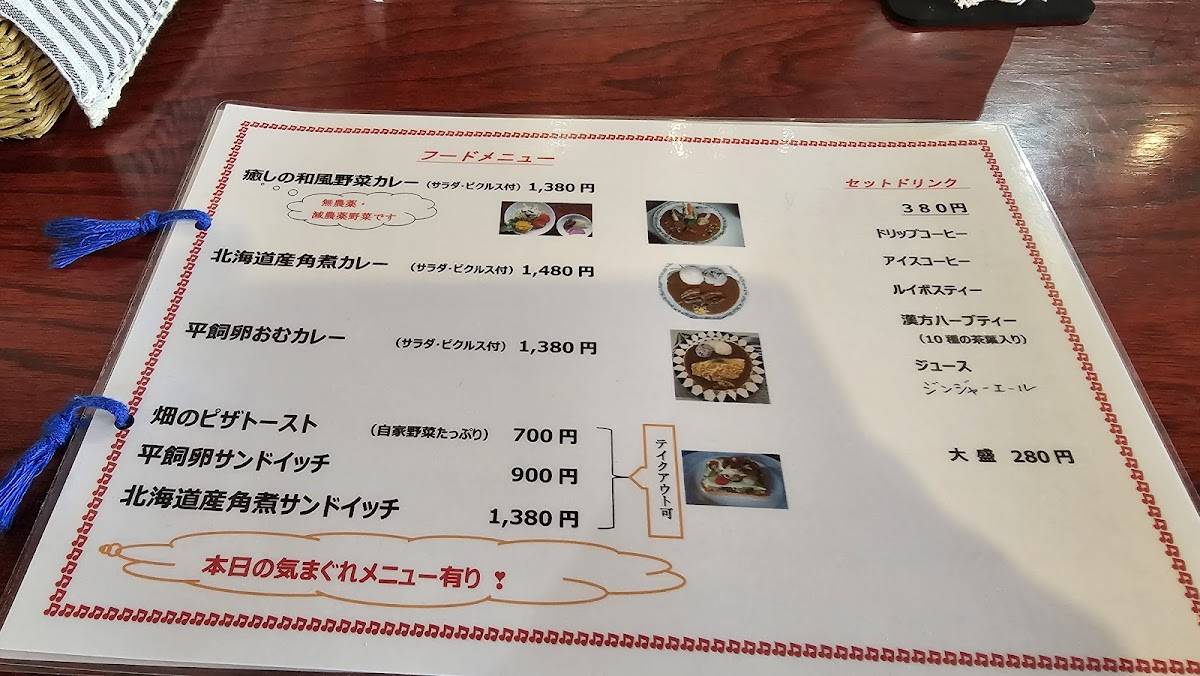 フードメニュー
癒しの和風野菜カレー（サラダ・ピクルス付）1,380円
無農薬・
減農薬野菜です
北海道産角煮カレー （サラダ・ピクルス付）1,480円
平飼卵おむカレー （サラダ・ピクルス付）1,380円
畑のピザトースト （自家野菜たっぷり） 700円
平飼卵サンドイッチ 900円
北海道産角煮サンドイッチ 1,380円
テイクアウト可
本日の気まぐれメニュー有り❣
セットドリンク
３８０円
ドリップコーヒー
アイスコーヒー
ルイボスティー
漢方ハーブティー
（10種の茶葉入り）
ジュース
ジンジャーエール
大盛 280円